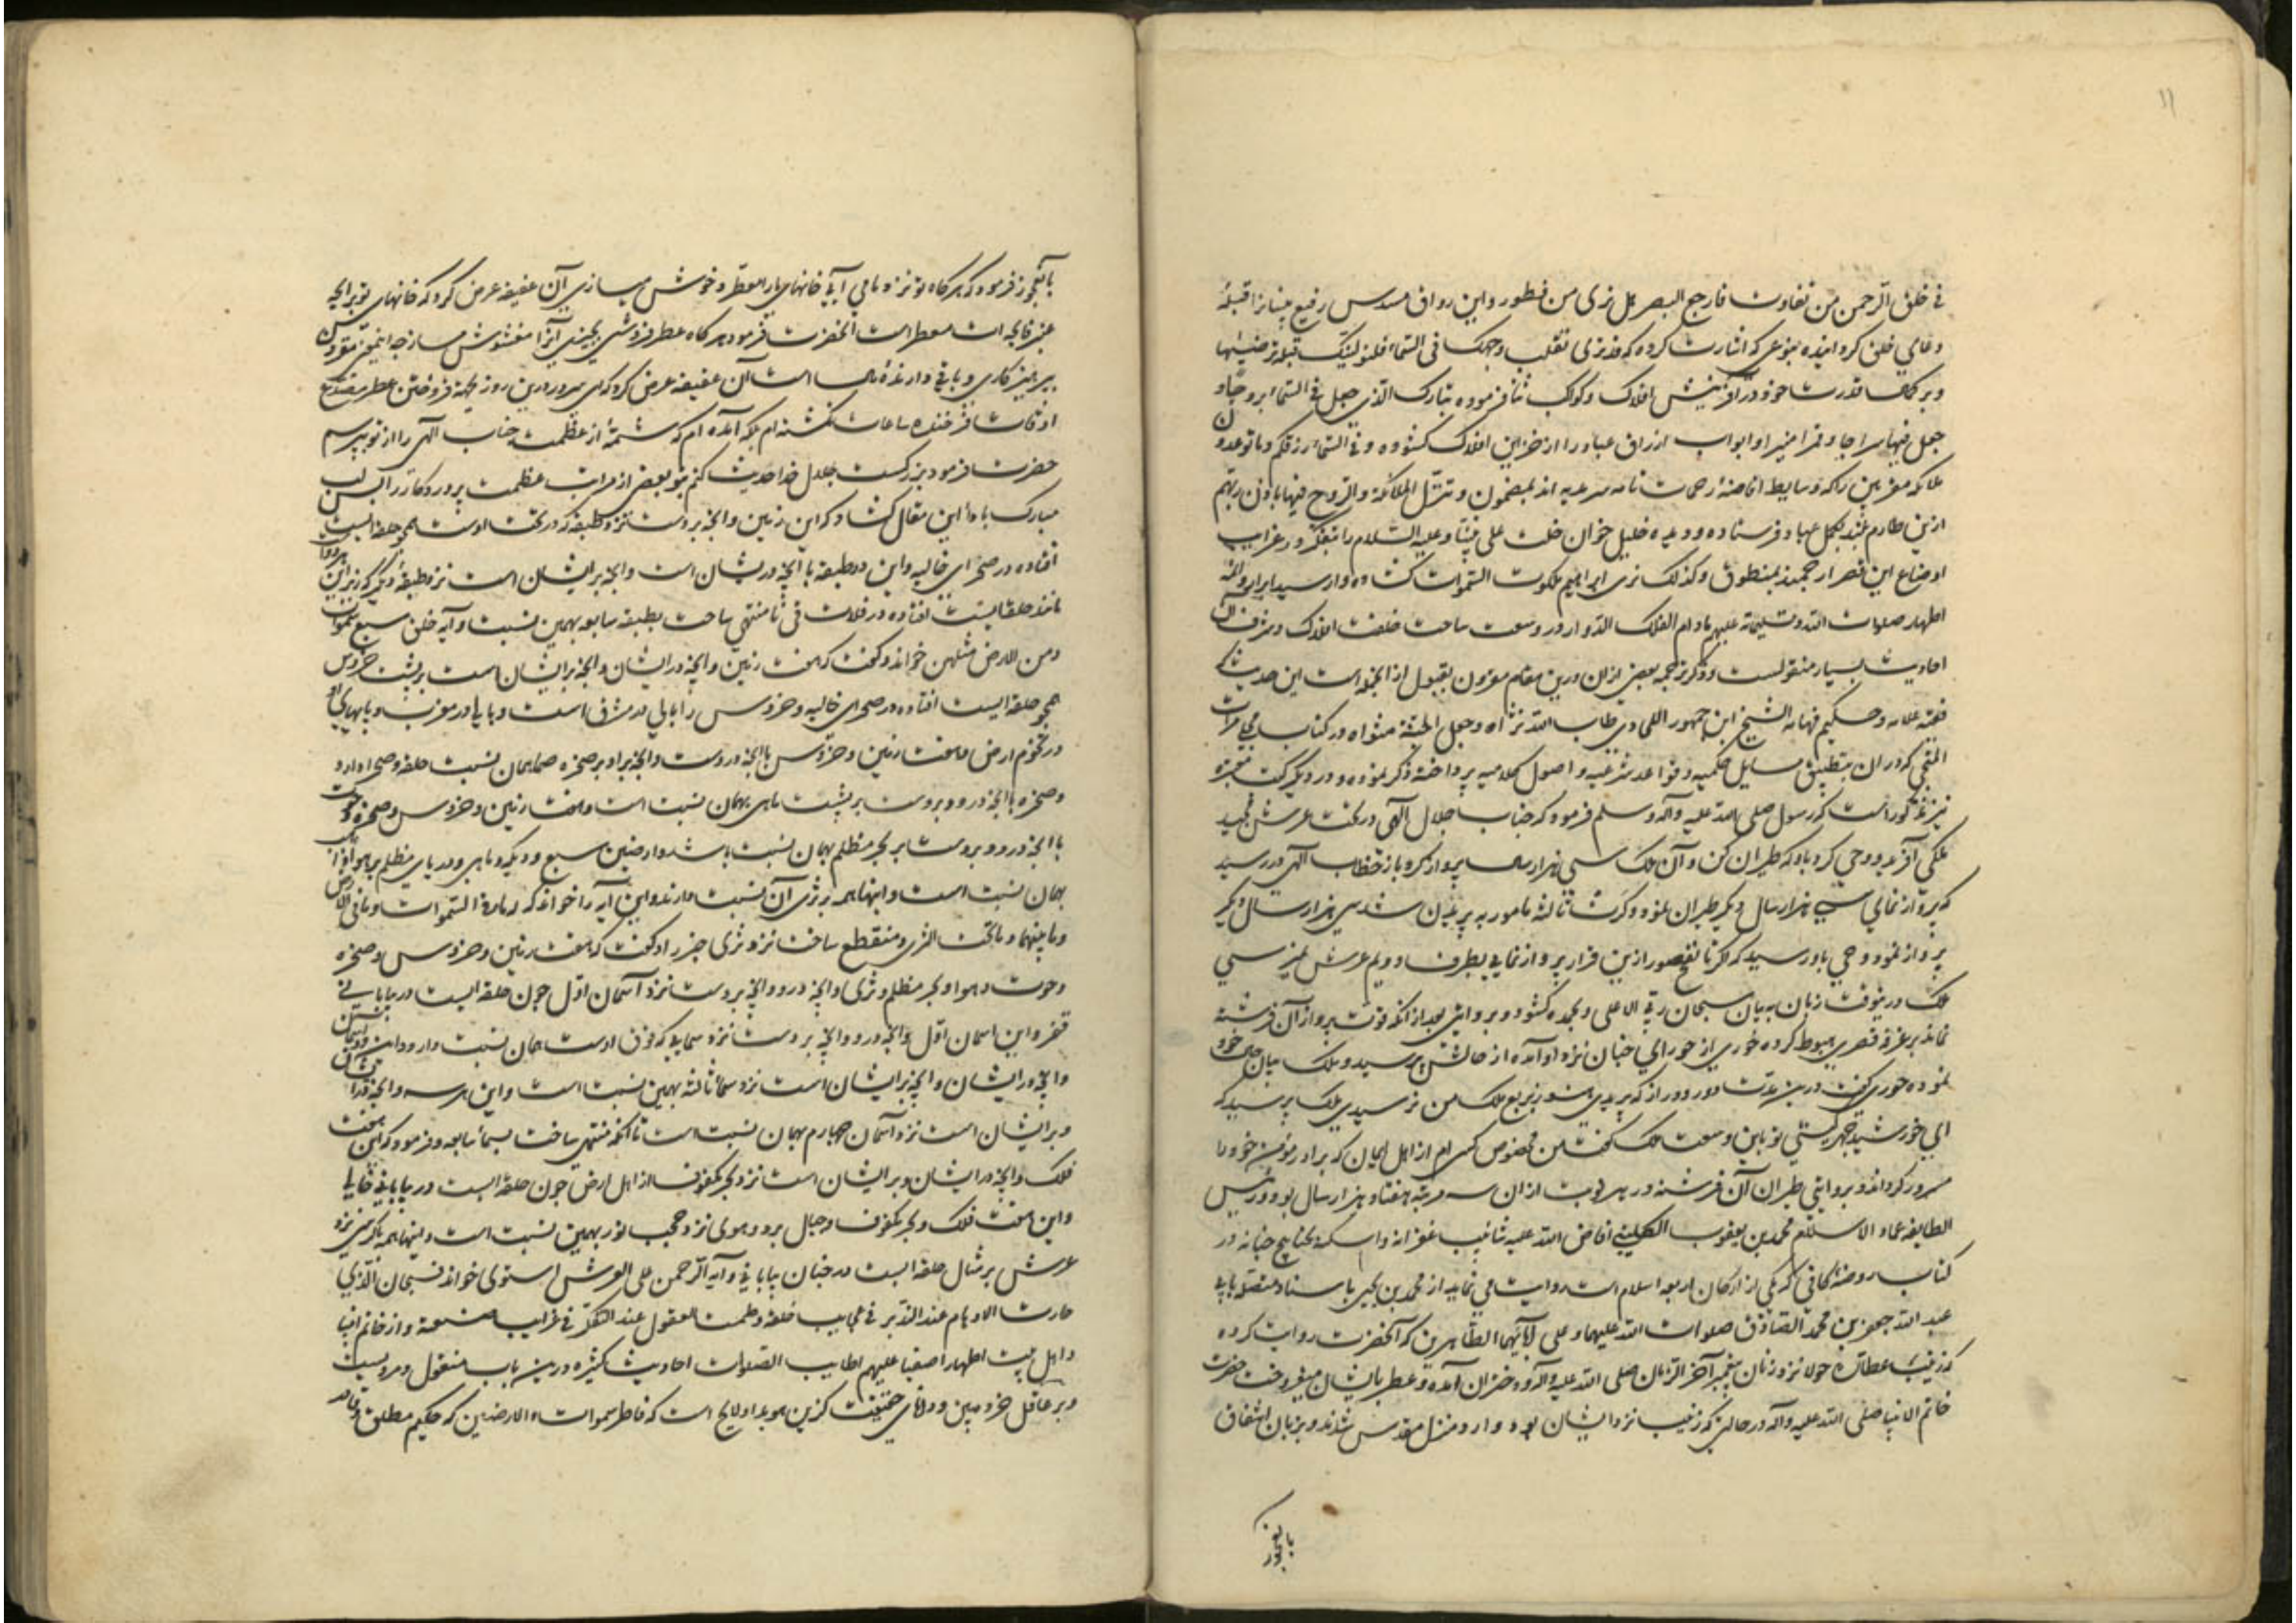 فی خلق الرحمن من تفاوت فارجع البصر هل تری من فطور و این رواق مسدس رفیع بنیانرا قبلهٔ
دعای خلق کردانیده بنوعی که اشارت کرده که قد نری تقلب وجهک فی السماء فلنولینک قبلة ترضیها
و بر کمال قدرت خود در آفرینش افلاک و کواکب ثنا فرموده تبارک الذی جعل فی السماء بروجا و
جعل فیها سراجا و قمرا منیرا و ابواب ارزاق عباد را از خزاین افلاک کشوده و فی السماء رزقکم و ما توعدون
ملائکه مقربین را که وسایط افاضهٔ رحمت تامه سرمدیه اند بمضمون و تنزل الملائکة و الروح فیها باذن ربهم
ازین طارم بلند بکمل عباد فرستاده و دیده خلیل خوان خلت علی نبینا و علیه السلام را بتفکر در غرایب
اوضاع این قصر ارجمند بمنطوق و کذلک نری ابراهیم ملکوت السموات کشاده و از سید ابرار و ائمه
اطهار صلوات الله و تسلیماته علیهم ما دام الفلک الدوار در وسعت ساحت خلقت افلاک و شرف آن
احادیث بسیار منقولست و ذکر ترجمه بعضی از ان درین مقام مقرون بقبول از انجمله است این حدیث که
فقیه علامه و حکیم فهامه الشیخ ابن جمهور اللحاوی طاب الله ثراه و جعل الجنة مثواه در کتاب مجلی مرات
المنجی که در ان بتطبیق مسایل حکمیه و قواعد شرعیه و اصول کلامیه پرداخته ذکر نموده و در دیکر کتب معتبره
نیز مذکور است که رسول صلی الله علیه و آله و سلم فرمود که جناب جلال الهی در تحت عرش مجید
ملکی آفرید و وحی کرد باو که طیران کن و آن ملک سی هزار سال پرواز کرد باز خطاب الهی در رسید
که پرواز نمای سی هزار سال دیکر طیران نمود و کرت ثالثه مامور به پریدن شد سی هزار سال دیکر
پرواز نمود وحی باو رسید که اکر تا نفخ صور ازین قرار پرواز نمایی بطرف دویم عرش نمیرسی
ملک درینوقت زبان به بیان سبحان ربی الاعلی و بحمده کشود و بروایتی بعد از انکه قوت پرواز آن فرشته
نماند بر غرفه قصری هبوط کرده حوری از حورای جنان نزد او آمده از حالش پرسید و ملک بیان حال خود
نموده حوری کفت درین مدت دور و دراز که پریدی هنوز بربع ملک من نرسیدی ملک پرسید که
ای خورشید چهر کیستی تو باین وسعت ملک کفت من مخصوص کسی ام از اهل ایمان که برادر مؤمن خود را
مسرور کرداند و بروایتی طیران آن فرشته در هر نوبت از ان سه مرتبه هفتاد هزار سال بود و رئیس
الطایفه عماد الاسلام محمد بن یعقوب الکلینی افاض الله علیه شآبیب غفرانه و اسکنه بحبابیح جنانه در
کتاب روضهٔ کافی که یکی از ارکان اربعه اسلام است روایت می نماید از محمد بن یحیی باسناد متصله بابی
عبد الله جعفر بن محمد الصادق صلوات الله علیهما و علی آبائهما الطاهرین که آنحضرت روایت کرده
که زینب عطاره حولا نزد زنان پیغمبر آخر الزمان صلی الله علیه و آله و دختران آمده و عطر بایشان میفروخت حضرت
خاتم الانبیا صلی الله علیه و آله در حالتی که زینب نزد ایشان بود وارد منزل مقدس شدند و بزبان اشفاق
بانعجوز
بانعجوز فرمود که هر کاه تو نزد ما می آیی خانهای ما را معطر و خوش میسازی آن عفیفه عرض کرد که خانهای تو برایحه
عنبر فایحه ات معطر است آنحضرت فرمود هر کاه عطر فروشی بخیس آنرا مغشوش مساز چه اینمعنی مقرون
بپرهیزکاری و باقی دارندهٔ مال است آن عفیفه عرض کرد که ای سرور درین روز بجهة فروختن عطر مصدع
اوقات فرخنده ساعات نکشته ام بلکه آمده ام که شمهٔ از عظمت جناب الهی را از تو بپرسم
حضرت فرمود بزرکست جلال خدا حدیث کنم بتو بعضی از مراتب عظمت پروردکار را پس لب
مبارک باداء این مقال کشاد که این زمین و انچه بروست نزد طبقه که در تحت اوست همچو حلقه ایست
افتاده در صحرای خالیه و این دو طبقه با انچه دریشان است و انچه بر ایشان است نزد طبقهٔ دیکر که زیر این هر دو است
مانند حلقه ایست افتاده در فلات قی تا منتهی ساخت بطبقه سابعه بهمین نسبت و آیه خلق سبع سموات
و من الارض مثلهن خواند و کفت که هفت زمین و انچه در ایشان و انچه بر ایشان است بر پشت خروس
همچو حلقه ایست افتاده در صحرای خالیه و خروس را بالی در مشرق است و بالی در مغرب و پایهای او
در تخوم ارض و هفت زمین و خروس با انچه دروست و انچه بر او بر صخره صما همان نسبت حلقه و صحرا دارد
و صخره با انچه در و و بروست بر پشت ماهی بهمان نسبت است و هفت زمین و خروس و صخره و حوت
با انچه در و و بروست بر بحر مظلم بهمان نسبت باشد و ارضین سبع و دیک و ماهی و دریای مظلم بر هوا نیز
بهمان نسبت است و اینها همه بر ثری آن نسبت دارند و این آیه را خواند که له ما فی السموات و ما فی الارض
و ما بینهما و ما تحت الثری و منقطع ساخت نزد ثری خبر را و کفت که هفت زمین و خروس و صخره
و حوت و هوا و بحر مظلم و ثری و انچه در و و انچه بروست نزد آسمان اول چون حلقه ایست در بیابانی
قفر و این اسمان اول و انچه در و و انچه بروست نزد سمایی که فوق اوست همان نسبت دارد و این دو آسمان
و انچه در ایشان و انچه بر ایشان است نزد سماء ثالثه بهمین نسبت است و این هر سه و انچه در ایشان
و بر ایشان است نزد آسمان چهارم بهمان نسبت است تا انکه منتهی ساخت بسماء سابعه و فرمود که این هفت
فلک و انچه در ایشان و بر ایشان است نزد بحر مکفوف از اهل ارض چون حلقه ایست در بیابانی خالی
و این هفت فلک و بحر مکفوف و جبال برد و هوی نزد حجب نور بهمین نسبت است و اینها همه با کرسی نزد
عرش بر مثال حلقه ایست در چنان بیابانی و آیه الرحمن علی العرش استوی خواند فسبحان الذی
حارت الاوهام عند التدبر فی عجایب خلقه و طمست العقول عند التفکر فی غرایب صنعه و از خاتم انبیا
و اهل بیت اطهار اصفیا علیهم اطایب الصلوات احادیث کثیره درین باب منقول و مرویست
و بر عاقل خرده بین و دانای حقیقت کزین هویدا و لایح است که فاطر سموات و الارضین که حکیم مطلق و قادر